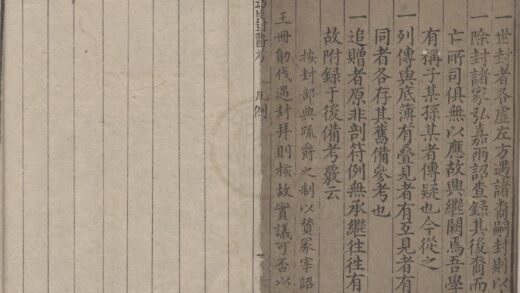 一世封者各虛左方遇諸裔嗣封則以
一除封諸家弘嘉兩詔查録其後裔而
亡所司俱無以應故與繼闕焉吾學
有稱子某孫某者傳疑也今從之
一列傳與底薄有疊見者有互見者有
同者各存其舊備參考也
一追贈者原非剖符例無承繼徃徃有
故附录于後備考覈云
按封部典䟽爵之制以贊冢宰詔
王冊勛伐遇封拜則核故實議可否以
凡例